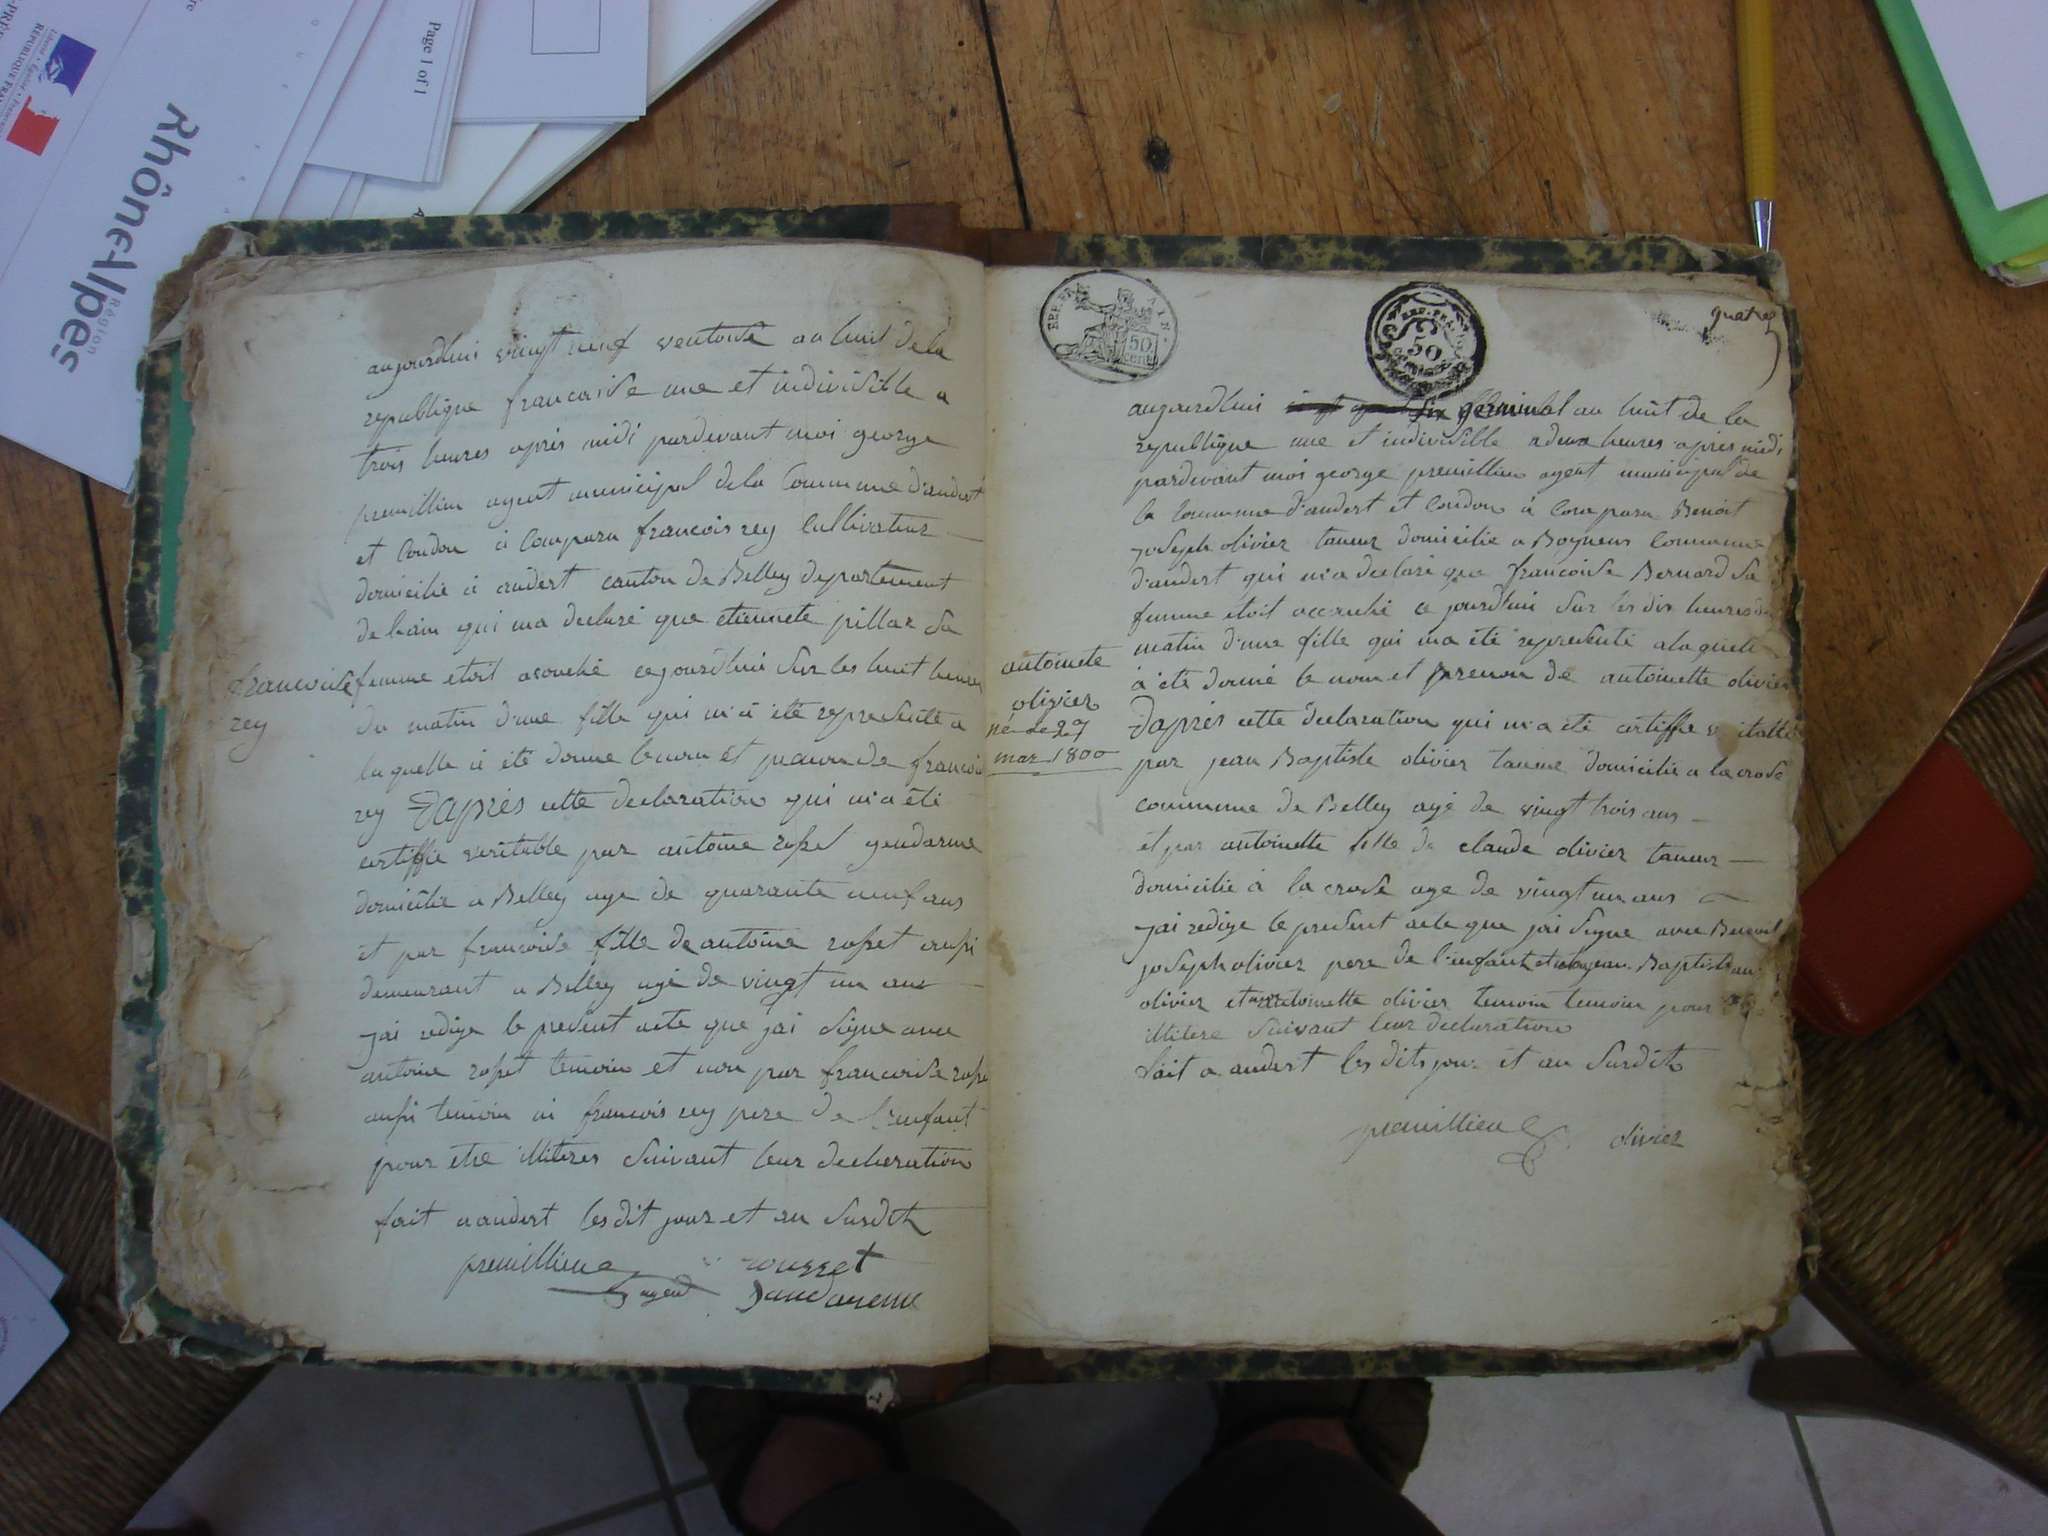 RhôneAlpes
Région
Page 1 of 1
Liberté • Égalité • Fraternité
aujourdhui vingt neuf ventose an huit de la
republique francaise une et indivisible a
trois heures après midi pardevant moi george
premillieu agent municipal de la Commune d'andert
et Condon à comparu francois rey Cultivateur
domicilié à andert canton de Belley departement
de lain qui ma declaré que etiennete pillaz sa
femme etoit acouché cejourdhui sur les huit heures
du matin d'une fille qui m'a été representé a
laquelle à été donne le nom et prenom de francoise
rey D'après cette declaration qui m'a été
certiffié veritable par antoine rosset gendarme
domicilie a Belley age de quarante neuf ans
et par francoise fille de antoine rosset aussi
demeurant a Belley agé de vingt un ans
jai redige le present acte que jai signe avec
antoine rosset temoin et non par francoise rosset
aussi temoin ni francois rey pere de l'enfant
pour etre illiteres suivant leur declaration
fait a andert les dit jour et an susdit
premillieu rousset
agent
francoise
rey
REP. FRA. AIN.
50
cent.
REP. FRA.
50
aujourdhui six germinal an huit de la
republique une et indivisible a deux heures après midi
pardevant moi george premillieu agent municipal de
la commune d'andert et Condon à comparu Benoit
joseph olivier taneur domicilie a Bogneus Commune
d'andert qui m'a declaré que francoise Bernard sa
femme étoit accouché ce jourdhui sur les dix heures du
matin d'une fille qui m'a été representé a laquelle
à été donné le nom et prenom de antoinette olivier
D'après cette declaration qui m'a été certiffié veritable
par jean Baptiste olivier taneur domicilie a la crose
commune de Belley agé de vingt trois ans
et par antoinette fille de claude olivier taneur
domicilié à la crose age de vingt un ans
jai redige le present acte que jai signe avec Benoit
joseph olivier pere de l'enfant et jean Baptiste
olivier et antoinette olivier temoin temoin pour
illitere suivant leur declaration
fait a andert les dits jour et an susdit
premillieu olivier
antoinete
olivier
né le 27
mar 1800